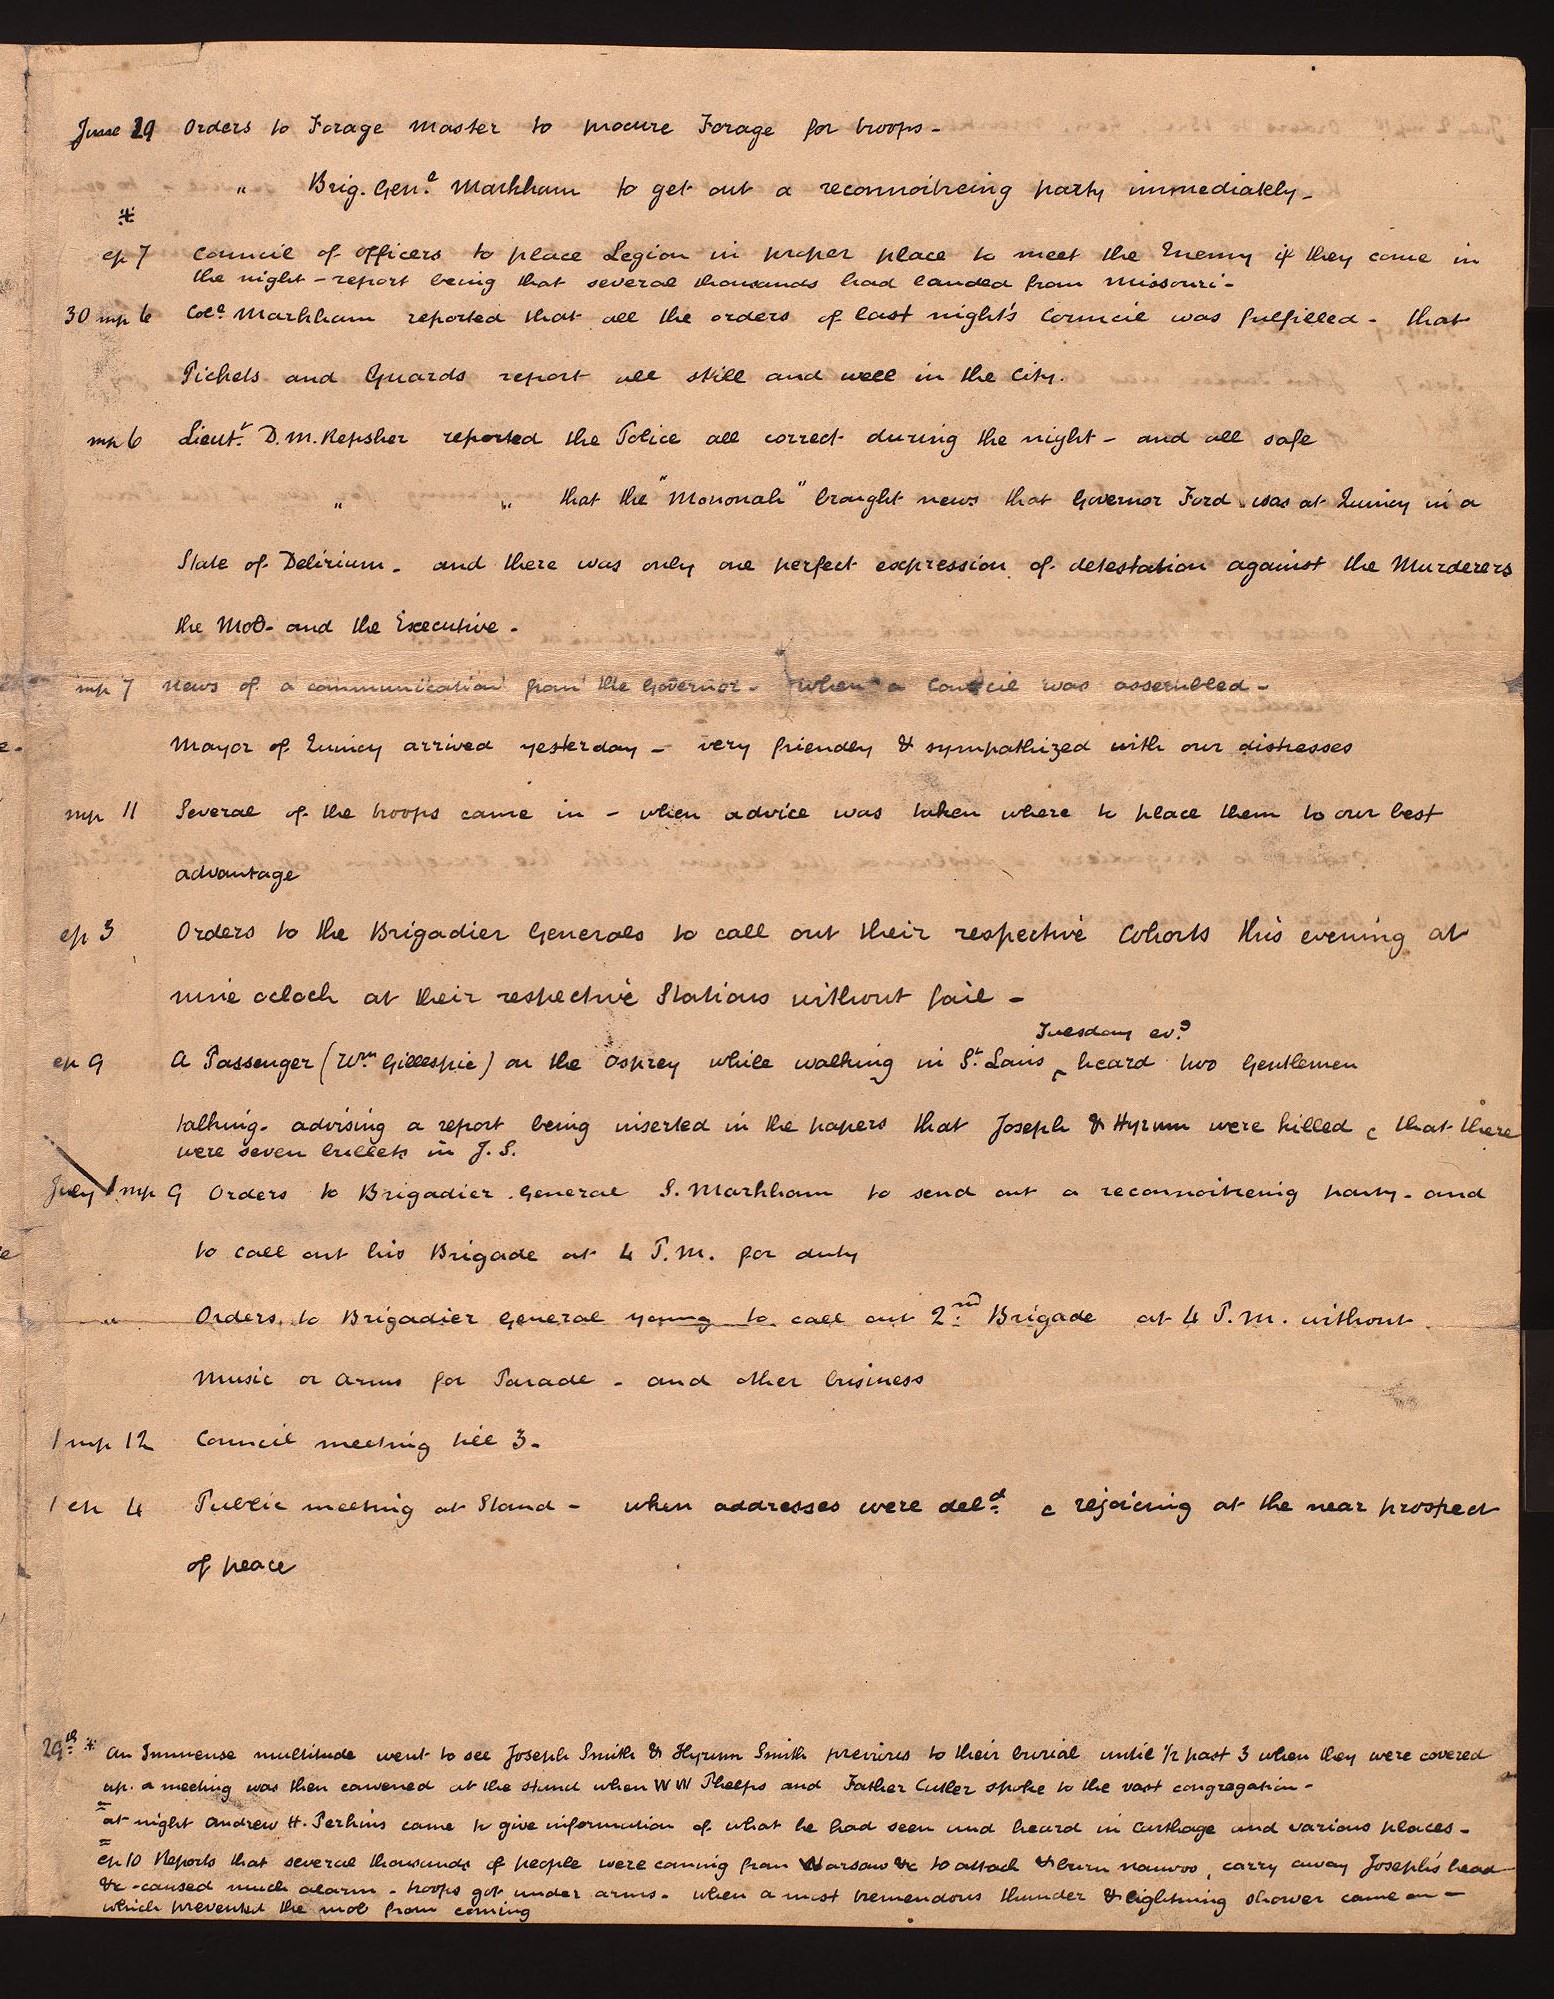 June 29 Orders to Forage Master to procure Forage for troops -
" Brig. Genl. Markham to get out a reconnoitreing party immediately -
*
ep 7 Council of officers to place Legion in proper place to meet the Enemy if they come in
the night - report being that several thousands had landed from Missouri -
30 mp 6 Coll. Markham reported that all the orders of last night's Council was fulfilled - that
Pickets and Guards report all still and well in the City.
mp 6 Lieutt. D. M. Repsher reported the Police all correct during the night - and all safe
" " that the "Mononah" brought news that Governor Ford was at Quincy in a
State of Delirium - and there was only one perfect expression of detestation against the Murderers
the Mob - and the Executive -
mp 7 news of a communication from the Governor - when a Council was assembled -
Mayor of Quincy arrived yesterday - very friendly & sympathized with our distresses
mp 11 Several of the troops came in - when advice was taken where to place them to our best
advantage
ep 3 Orders to the Brigadier Generals to call out their respective Cohorts this evening at
nine oclock at their respective Stations without fail -
Tuesday evg.
ep 9 A Passenger (Wm Gillespie) on the Osprey while walking in St. Louis ^ heard two Gentlemen
talking - advising a report being inserted in the papers that Joseph & Hyrum were killed & that there
were seven bullets in J. S.
July 1 mp 9 Orders to Brigadier General S. Markham to send out a reconnoitreing party - and
to call out his Brigade at 4 P.M. for duty
" Orders to Brigadier General young to call out 2nd. Brigade at 4 P.M. without
Music or Arms for Parade - and other business
1 mp 12 Council meeting till 3 -
1 ep 4 Public meeting at Stand - when addresses were deld. & rejoicing at the near prospect
of peace
29th. * An Immense multitude went to see Joseph Smith & Hyrum Smith previous to their burial until 1/2 past 3 when they were covered
up. a meeting was then convened at the stand when W W Phelps and Father Cutler spoke to the vast congregation -
at night Andrew H. Perkins came to give information of what he had seen and heard in Carthage and various places -
ep 10 Reports that several thousands of people were coming from Warsaw &c to attack & burn nauvoo, carry away Joseph's head
&c - caused much alarm - troops got under arms - when a most tremendous thunder & lightning shower came on -
which prevented the mob from coming